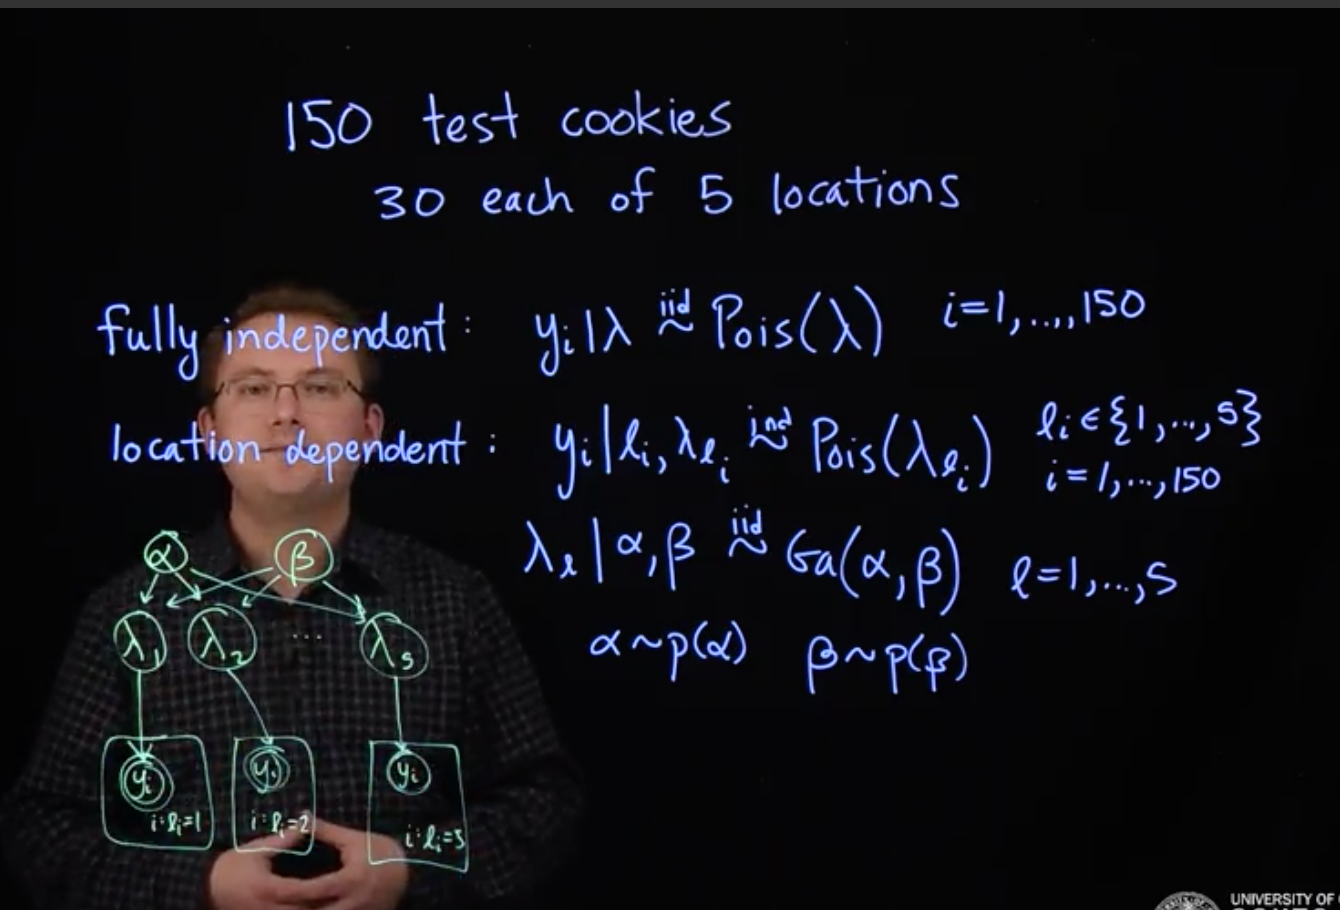 150 test cookies
30 each of 5 locations
fully independent: yᵢ|λ iid~ Pois(λ) i=1,...,150
location dependent: yᵢ|ℓᵢ, λ_ℓᵢ ind~ Pois(λ_ℓᵢ) ℓᵢ∈{1,...,5}
i=1,...,150
λ_ℓ|α,β iid~ Ga(α,β) ℓ=1,...,5
α~p(α) β~p(β)
α β
λ₁ λ₂ ... λ₅
yᵢ yᵢ yᵢ
i:ℓᵢ=1 i:ℓᵢ=2 i:ℓᵢ=5
UNIVERSITY OF